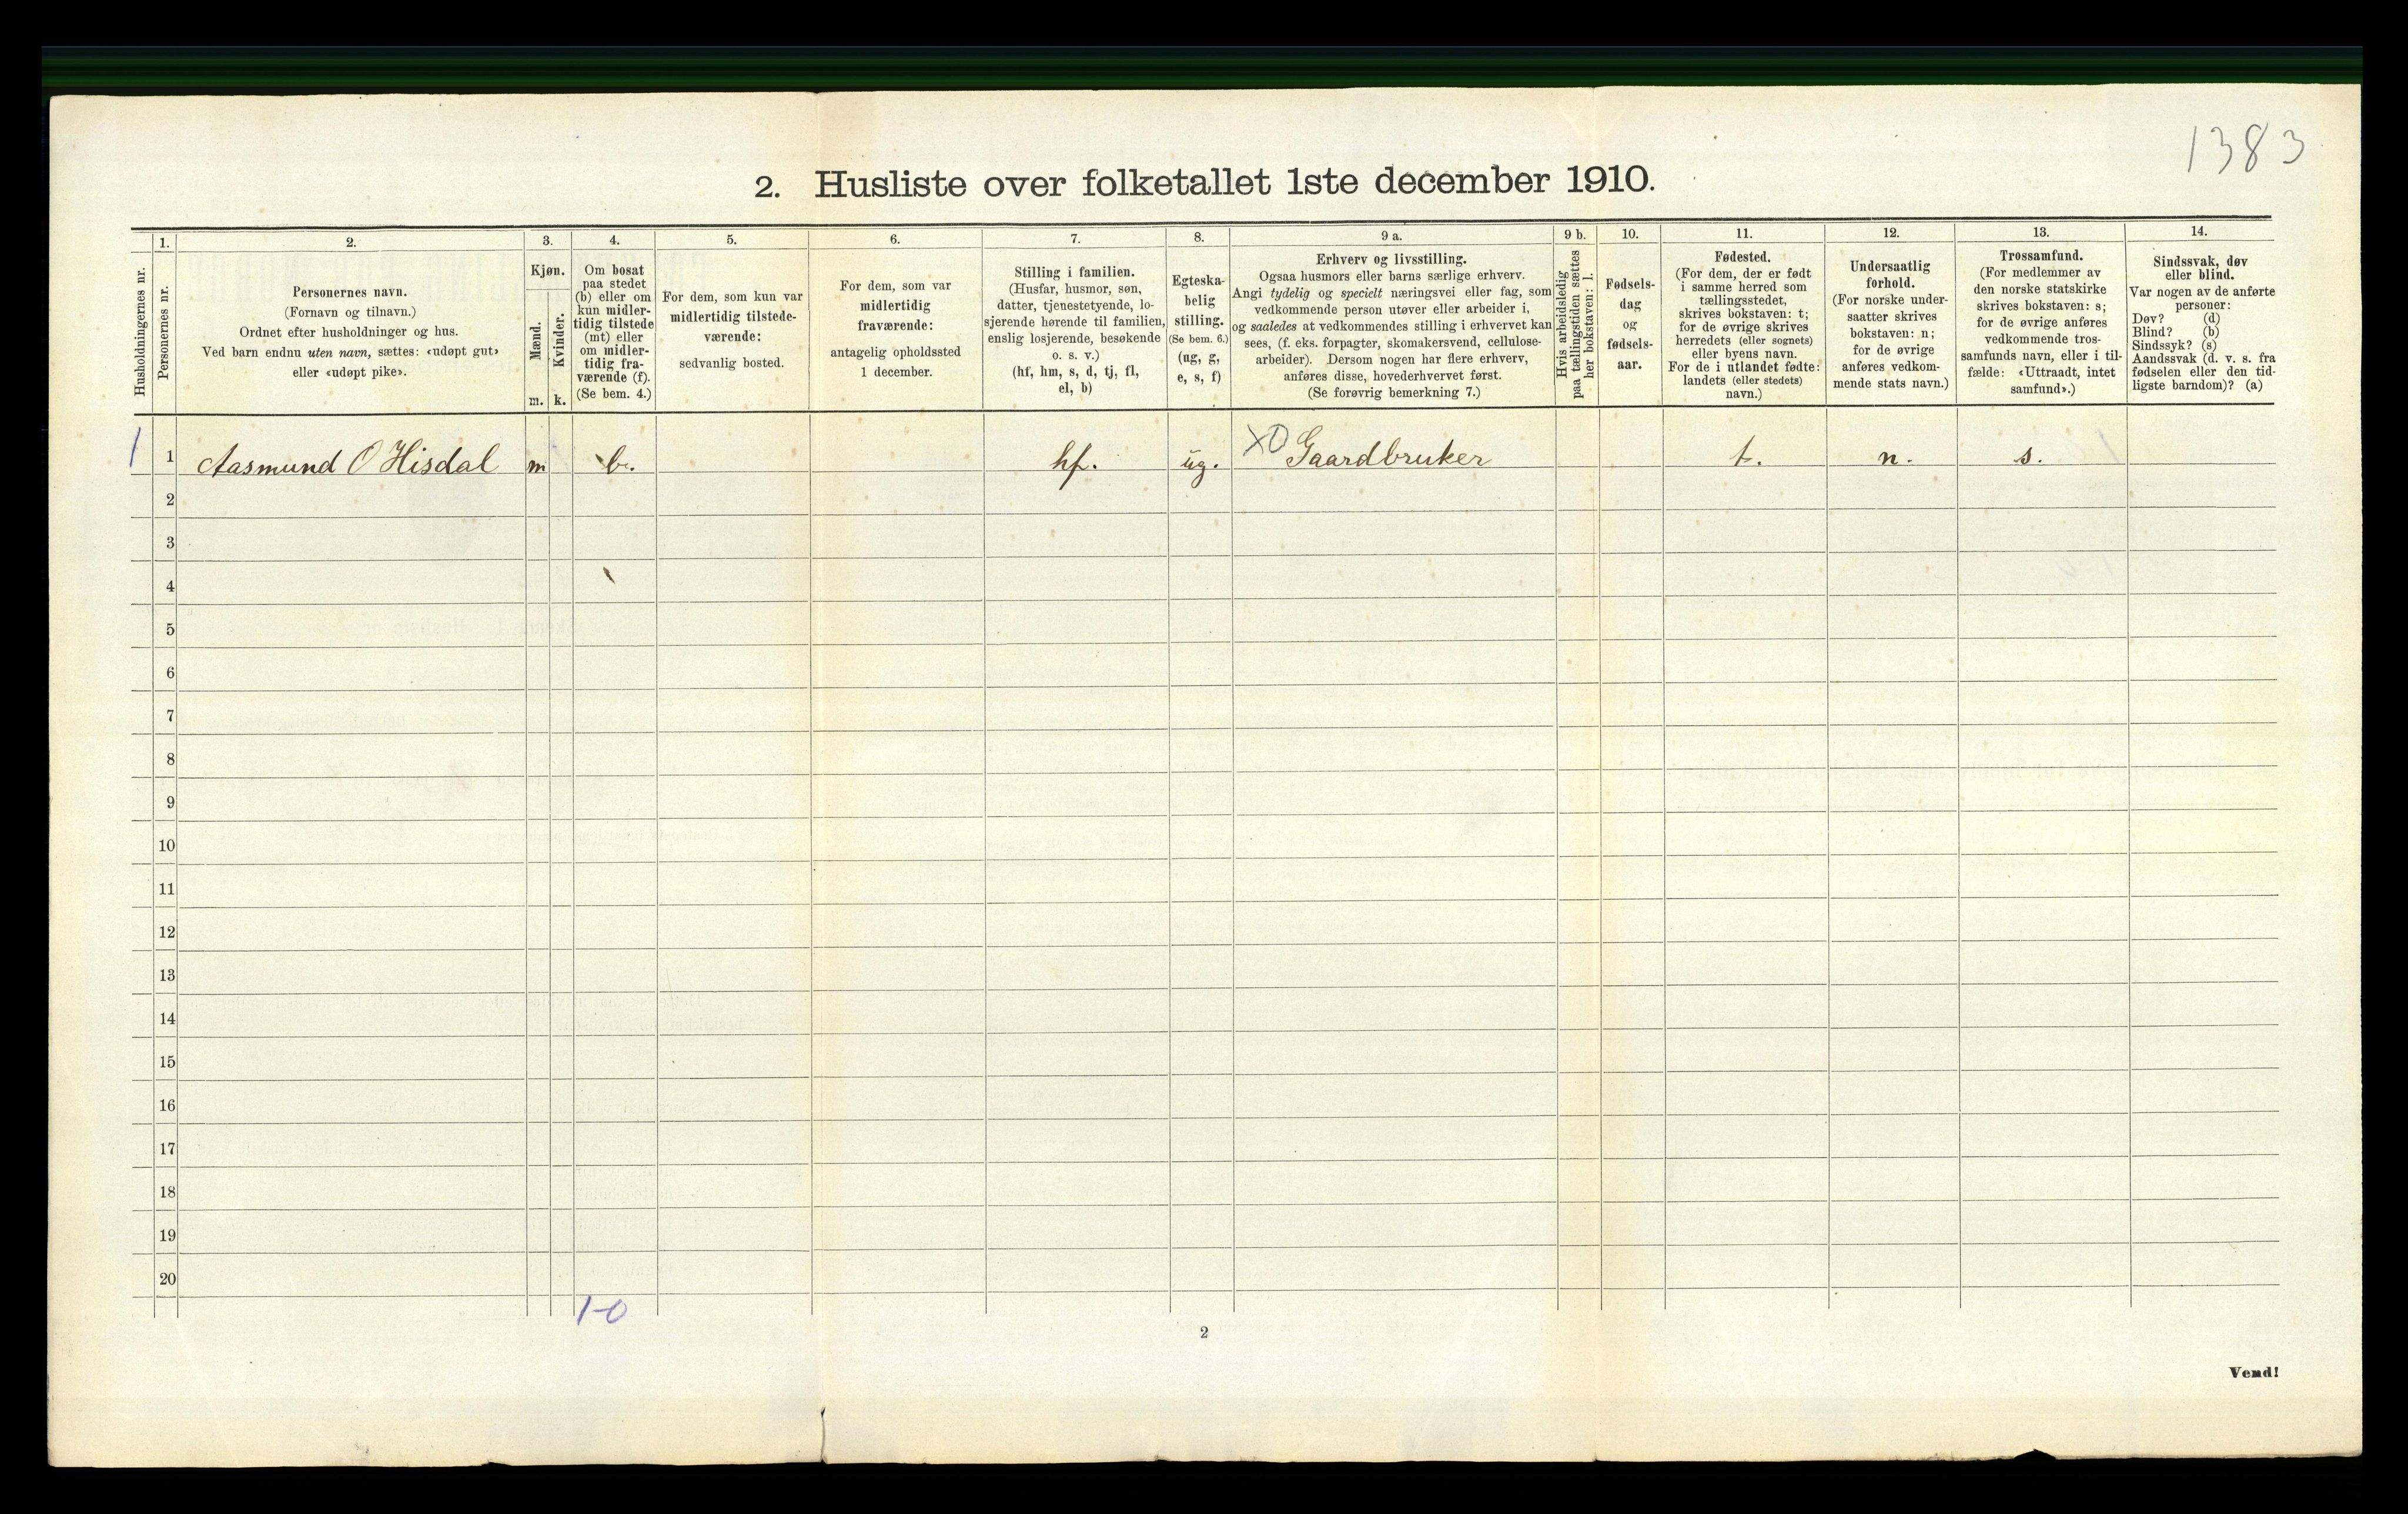 1383
2. Husliste over folketallet 1ste december 1910.
Husholdningernes nr.
1.
Personernes nr.
2.
Personernes navn.
(Fornavn og tilnavn.)
Ordnet efter husholdninger og hus.
Ved barn endnu uten navn, sættes: «udøpt gut»
eller «udøpt pike».
3.
Kjøn.
Mænd.
Kvinder.
m. k.
4.
Om bosat
paa stedet
(b) eller om
kun midler-
tidig tilstede
(mt) eller
om midler-
tidig fra-
værende (f).
(Se bem. 4.)
5.
For dem, som kun var
midlertidig tilstede-
værende:
sedvanlig bosted.
6.
For dem, som var
midlertidig
fraværende:
antagelig opholdssted
1 december.
7.
Stilling i familien.
(Husfar, husmor, søn,
datter, tjenestetyende, lo-
sjerende hørende til familien,
enslig losjerende, besøkende
o. s. v.)
(hf, hm, s, d, tj, fl,
el, b)
8.
Egteska-
belig
stilling.
(Se bem. 6.)
(ug, g,
e, s, f)
9 a.
Erhverv og livsstilling.
Ogsaa husmors eller barns særlige erhverv.
Angi tydelig og specielt næringsvei eller fag, som
vedkommende person utøver eller arbeider i,
og saaledes at vedkommendes stilling i erhvervet kan
sees, (f. eks. forpagter, skomakersvend, cellulose-
arbeider). Dersom nogen har flere erhverv,
anføres disse, hovederhvervet først.
(Se forøvrig bemerkning 7.)
9 b.
Hvis arbeidsledig
paa tællingstiden sættes
her bokstaven: l.
10.
Fødsels-
dag
og
fødsels-
aar.
11.
Fødested.
(For dem, der er født
i samme herred som
tællingsstedet,
skrives bokstaven: t;
for de øvrige skrives
herredets (eller sognets)
eller byens navn.
For de i utlandet fødte:
landets (eller stedets)
navn.)
12.
Undersaatlig
forhold.
(For norske under-
saatter skrives
bokstaven: n;
for de øvrige
anføres vedkom-
mende stats navn.)
13.
Trossamfund.
(For medlemmer av
den norske statskirke
skrives bokstaven: s;
for de øvrige anføres
vedkommende tros-
samfunds navn, eller i til-
fælde: «Uttraadt, intet
samfund».)
14.
Sindssvak, døv
eller blind.
Var nogen av de anførte
personer:
Døv? (d)
Blind? (b)
Sindssyk? (s)
Aandssvak (d. v. s. fra
fødselen eller den tid-
ligste barndom)? (a)
1 1 Aasmund O Hisdal m b. hf. ug. XO Gaardbruker t. n. s.
2
3
4
5
6
7
8
9
10
11
12
13
14
15
16
17
18
19
20
1-0
2
Vend!